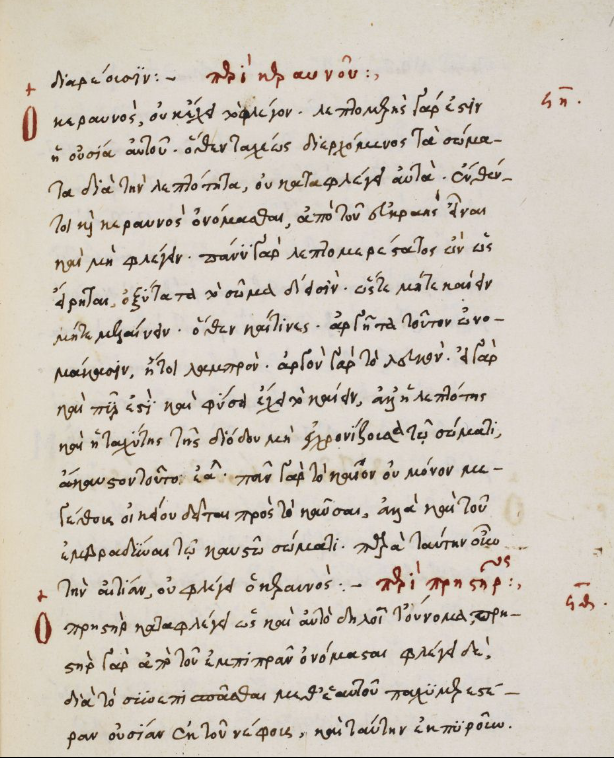 διαρέουσιν:– περὶ κεραυνοῦ:
Ὁ κεραυνὸς, οὐκ ἔχει τὸ φλέγον. λεπτομερὴς γάρ ἐστιν ϟη.
ἡ οὐσία αὐτοῦ. ὅθεν ταχέως διερχόμενος τὰ σώμα-
τα διὰ τὴν λεπτότητα, οὐ καταφλέγει αὐτὰ. ἐνθέν-
τοι καὶ κεραυνὸς ὀνόμασθαι, ἀπὸ τοῦ εἶναι
καὶ μὴ φλέγειν. πάνυ γὰρ λεπτομερέστατος ὢν ὡς
εἴρηται, ὀξύτατα τὸ σῶμα δίεισιν. ὥστε μήτε καίειν
μήτε μελαίνειν. ὅθεν καί τινες. ἀργῆτα τοῦτον ὠνο-
μάκασιν, ἤτοι λαμπρὸν. ἀργὸν γὰρ τὸ λευκὸν. εἰ γὰρ
καὶ πῦρ ἐστὶ καὶ φύσει ἔχει τὸ καίειν, ἀλλ' ἡ λεπτότης
καὶ ἡ ταχύτης τῆς διόδου μὴ ἐγχρονίζουσα τῷ σώματι,
ἄκαυστον τοῦτο ἐᾶ. πᾶν γὰρ τὸ καῖον οὐ μόνον με-
γέθους οἰκείου δεῖται πρὸς τὸ καῦσαι, ἀλλὰ καὶ τοῦ
ἐμβραδῦναι τῷ καυστῷ σώματι. παρὰ ταύτην οὖν
τὴν αἰτίαν, οὐ φλέγει ὁ κεραυνός:– περὶ πρηστῆρος:
Ὁ πρηστὴρ καταφλέγει ὡς καὶ αὐτὸ δηλοῖ τοὔνομα, πρη-
στὴρ γὰρ ἀπὸ τοῦ ἐμπιπρᾶν ὀνόμασται φλέγει δὲ,
διὰ τὸ συνεπισπᾶσθαι μεθ' ἑαυτοῦ παχυμερεστέ-
ραν οὐσίαν ἐκ τοῦ νέφους, καὶ ταύτην ἐκπυροῦν.